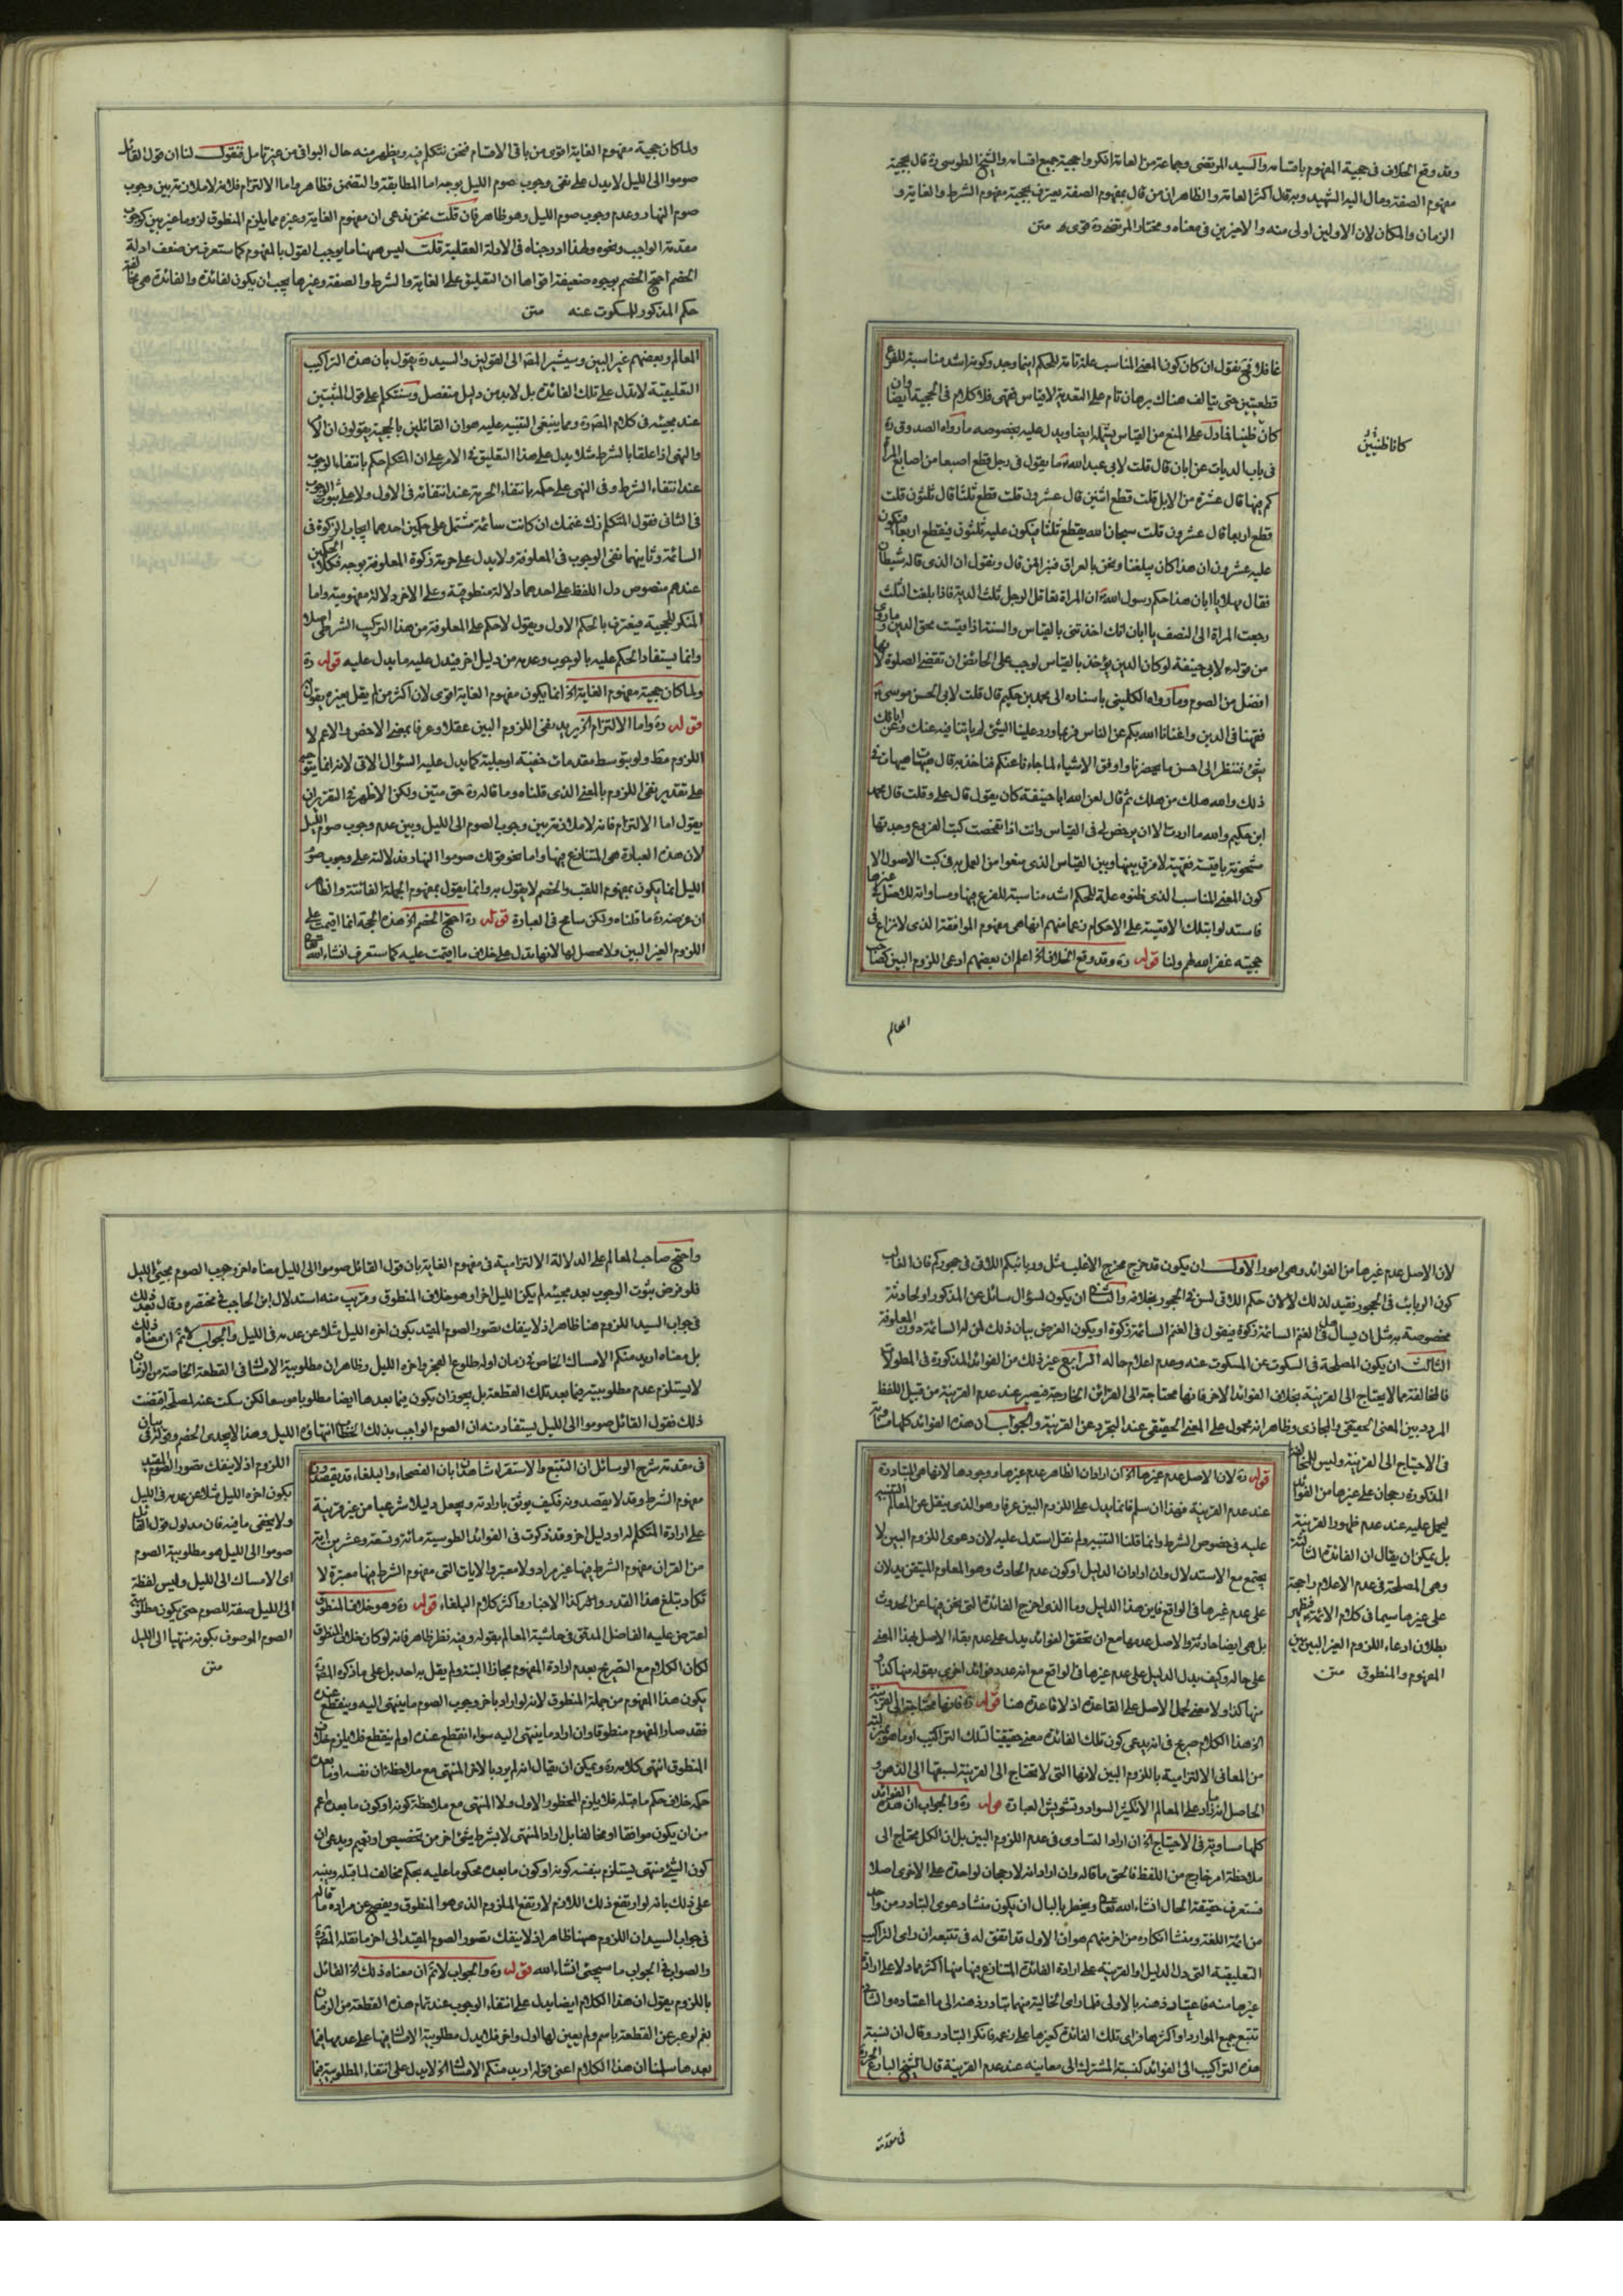 وقد وقع الخلاف في حجية المفهوم باقسامه والسيد المرتضى وجماعة من العامة انكروا حجية جميع اقسامه والشيخ الطوسي ره قال بحجية
مفهوم الصفة ومال اليه الشهيد وبه قال اكثر العامة والظاهر ان من قال بمفهوم الصفة يعترف بحجية مفهوم الشرط والغاية و
الزمان والمكان لان الاولين اولى منه والاخيرين في معناه ومختار المرتضى ره قوى متن
غافلا فنقول ان كان كون المعنى المناسب علة تامة للحكم اينما وجد وكونه اشد مناسبة للفرع
قطعيتين حتى يتالف هناك برهان تام على التعدية لا قياس فقهى فلا كلام في الحجية ايضا وان
كان ظنيا فما دل على المنع من القياس يشمله ايضا ويدل عليه بخصوصه ما رواه الصدوق ره
في باب الديات عن ابان قال قلت لابي عبد الله ما يقول في رجل قطع اصبعا من اصابع المراة
كم فيها قال عشرة من الابل قلت قطع اثنين قال عشرون قلت قطع ثلثا قال ثلثون قلت
قطع اربعا قال عشرون قلت سبحان الله يقطع ثلثا فيكون عليه ثلثون فيقطع اربعا فيكون
عليه عشرون ان هذا كان يبلغنا ونحن بالعراق فنبرا ممن قال ونقول ان الذى قاله شيطان
فقال مهلا يا ابان هذا حكم رسول الله ان المراة تعاقل الرجل ثلث الدية فاذا بلغت الثلث
رجعت المراة الى النصف يا ابان انك اخذتني بالقياس والسنة اذا قيست محق الدين وما روى
من قوله لابي حنيفة لو كان الدين يؤخذ بالقياس لوجب على الحائض ان تقضى الصلوة لانها
افضل من الصوم وما رواه الكليني باسناده الى محمد بن حكيم قال قلت لابي الحسن موسى
فقهنا في الدين واغنانا الله بكم عن الناس فربما ورد علينا الشئ لم ياتنا فيه عنك وعن ابائك
شئ فننظر الى احسن ما يحضرنا واوفق الاشياء لما جاءنا عنكم فناخذ به قال هيهات هيهات في
ذلك والله هلك من هلك ثم قال لعن الله ابا حنيفة كان يقول قال علي وقلت قال محمد
ابن حكيم والله ما اردت الا ان يرخص لي في القياس وانت اذا تفحصت كتب الفروع وجدتها
مشحونة باقيسة فقهية لا فرق بينها وبين القياس الذى منعوا من العمل به في كتب الاصول الا
كون المعنى المناسب الذى ظنوه علة للحكم اشد مناسبة للفرع فيها ومساواته للاصل في غيرها
فاستدلوا بتلك الاقيسة على الاحكام زعما منهم انها هي مفهوم الموافقة الذى لا نزاع في
حجيته غفر الله لهم ولنا قوله ره وقد وقع الخلاف الخ اعلم ان بعضهم ادعى اللزوم البين كصاحب
كانا ظنيين
المعالم
ولما كان حجية مفهوم الغاية اقوى من باقى الاقسام فنحن نتكلم فيه ويظهر منه حال البواقى من غير تامل فنقول لنا ان قول القائل
صوموا الى الليل لا يدل على نفى وجوب صوم الليل بوجه اما المطابقة والتضمن فظاهر واما الالتزام فلانه لا ملازمة بين وجوب
صوم النهار وعدم وجوب صوم الليل وهو ظاهر فان قلت نحن ندعى ان مفهوم الغاية وغيره مما يلزم المنطوق لزوما غير بين كوجوب
مقدمة الواجب ونحوه ولهذا ادرجناه في الادلة العقلية قلت ليس ههنا ما يوجب القول بالمفهوم كما ستعرف من ضعف ادلة
الخصم احتج الخصم بوجوه ضعيفة اقواها ان التعليق على الغاية والشرط والصفة وغيرها يجب ان يكون لفائدة والفائدة هي مخالفة
حكم المذكور للمسكوت عنه متن
المعالم وبعضهم غير البين وسيشير المصـ الى القولين والسيد ره يقول بان هذه التراكيب
التعليقية لا تدل على تلك الفائدة بل لا بد من دليل منفصل وسنتكلم على قول المثبتين
عند مجيئه في كلام المصـ ره ومما ينبغى التنبيه عليه هو ان القائلين بالحجية يقولون ان الامر
والنهى اذا علقا بالشرط مثلا يدل على هذا التعليق في الامر على ان المتكلم حكم بانتفاء الوجوب
عند انتفاء الشرط وفى النهى على حكمه بانتفاء الحرمة عند انتفائه في الاول ولا على ثبوت الوجوب
فى الثانى فقول المتكلم زك غنمك ان كانت سائمة مشتمل على حكمين احدهما ايجاب الزكوة في
السائمة وثانيهما نفى الوجوب في المعلوفة ولا يدل على حرمة زكوة المعلوفة بوجه فكلا الحكمين
عندهم منصوص دل اللفظ على احدهما دلالة منطوقية وعلى الاخر دلالة مفهومية واما
المنكر للحجية فيعترف بالحكم الاول ويقول لا حكم على المعلوفة من هذا التركيب الشرطى اصلا
وانما يستفاد الحكم عليه بالوجوب وعدمه من دليل اخر فيدل عليه ما يدل عليه قوله ره
ولما كان حجية مفهوم الغاية الخ انما يكون مفهوم الغاية اقوى لان اكثر من لم يقل بغيره يقول به
قوله ره واما الالتزام الخ يريد نفى اللزوم البين عقلا وعرفا بمعنى الاخص والاعم لا
اللزوم مطـ ولو بتوسط مقدمات خفية او جلية كما يدل عليه السؤال الاتى لانه انما يتوجه
على تقدير نفى اللزوم بالمعنى الذى قلناه وما قاله ره حق متين ولكن الاظهر في التقرير ان
يقول اما الالتزام فانه لا ملازمة بين وجوب الصوم الى الليل وبين عدم وجوب صوم الليل
لان هذه العبارة هي المتنازع فيها واما نحو قولك صوموا النهار فدلالته على وجوب صوم
الليل انما يكون بمفهوم اللقب والخصم لا يقول به وانما يقول بمفهوم الجملة الغائية والظاهر
ان غرضه ره ما قلناه ولكن سامح في العبارة قوله ره احتج الخصم الخ هذه الحجة انما اقيمت على
اللزوم الغير البين ولا محصل لها لانها تدل على خلاف ما اقيمت عليه كما ستعرف انشاء الله تعالى
لان الاصل عدم غيرها من الفوائد وهى امور الاول ان يكون قد خرج مخرج الاغلب مثل وربائبكم اللاتى في حجوركم فان الغالب
كون الربائب في الحجور فقيد لذلك لا لان حكم اللاتى لسن في الحجور بخلافه والثانى ان يكون لسؤال سائل عن المذكور او لحادثة
مخصوصة به مثل ان يسال هل في الغنم السائمة زكوة فيقول في الغنم السائمة زكوة او يكون الغرض بيان ذلك لمن له السائمة دون المعلوفة
الثالث ان يكون المصلحة في السكوت عن المسكوت عنه وعدم اعلام حاله الرابع غير ذلك من الفوائد المذكورة في المطولات
فالمخالفة مما لا يحتاج الى القرينة بخلاف الفوائد الاخر فانها محتاجة الى القرائن الخارجة فيصير عند عدم القرينة من قبيل اللفظ
المردد بين المعنى الحقيقى والمجازى وظاهر انه محمول على المعنى الحقيقى عند التجرد عن القرينة والجواب ان هذه الفوائد كلها متساوية
في الاحتياج الى القرينة وليس للمخالفة
المذكورة رجحان على غيرها من الفوائد
ليحمل عليه عند عدم ظهور القرينة
بل يمكن ان يقال ان الفائدة الثالثة
وهى المصلحة في عدم الاعلام راجحة
على غيرها سيما في كلام الائمة فظهر
بطلان ادعاء اللزوم الغير البين بين
المفهوم والمنطوق متن
قوله ره لان الاصل عدم غيرها الخ ان اراد ان الظاهر عدم غيرها ووجودها لانها هي المتبادرة
عند عدم القرينة فهذا ان سلم فانما يدل على اللزوم البين عرفا وهو الذى ينقل عن المعالم التنبيه
عليه في خصوص الشرط وانما قلنا التنبيه ولم نقل استدل عليه لان دعوى اللزوم البين لا
يجتمع مع الاستدلال وان اراد ان الدليل او كون عدم الحادث وهو المعلوم المتيقن يدلان
على عدم غيرها في الواقع فاين هذا الدليل وما الذى اخرج الفائدة التى نحن فيها عن الحدوث
بل هي ايضا حادثة والاصل عدمها مع ان تحقق الفوائد يدل على عدم بقاء الاصل بهذا المعنى
على حاله وكيف يدل الدليل على عدم غيرها في الواقع مع انه عدد فوائد اخرى بقوله منها كذا و
منها كذا ولا معنى لحمل الاصل على القاعدة اذ لا قاعدة هنا قوله ره فانها محتاجة الى القرينة
الخ هذا الكلام صريح في انه يدعى كون تلك الفائدة معنى حقيقيا لتلك التراكيب او ما هو بمنزلته
من المعانى الالتزامية باللزوم البين لانها التى لا تحتاج الى القرينة لسبقها الى الذهن و
الحاصل انه ما زاد على المعالم الا تكثير السواد وتشويش العبارة قوله ره والجواب ان هذه الفوائد
كلها متساوية في الاحتياج الخ ان اراد التساوى في عدم اللزوم البين بل ان الكل محتاج الى
ملاحظة امر خارج من اللفظ فالحق ما قاله وان اراد انه لا رجحان لواحدة على الاخرى اصلا
فستعرف حقيقة الحال انشاء الله تعالى ويخطر بالبال ان يكون منشاء دعوى التبادر من واحد
من ائمة اللغة ومنشا انكاره من اخر منهم هو ان الاول قد اتفق له في تتبعه ان راى التراكيب
التعليقية التى دل الدليل او القرينة على ارادة الفائدة المتنازع فيها منها اكثر مما دلا على ارادة
غيرها منه فاعتاد ذهنه بالاولى فلما راى الخالية منهما تبادر ذهنه الى ما اعتاده والثانى
تتبع جميع الموارد او اكثرها فراى تلك الفائدة كغيرها على زعمه فانكر التبادر وقال ان نسبة
هذه التراكيب الى الفوائد كنسبة المشترك الى معانيه عند عدم القرينة قال الشيخ البارع الحر ره
في مقدمة
واحتج صاحب المعالم على الدلالة الالتزامية في مفهوم الغاية بان قول القائل صوموا الى الليل معناه اخر وجوب الصوم مجئ الليل
فلو فرض ثبوت الوجوب بعد مجيئه لم يكن الليل اخرا وهو خلاف المنطوق وقريب منه استدلال ابن الحاجب في مختصره وقال بعد ذلك
في جواب السيد اللزوم هنا ظاهر اذ لا ينفك تصور الصوم المقيد بكون اخره الليل مثلا عن عدمه في الليل والجواب لا نم ان معناه ذلك
بل معناه اريد منكم الامساك الخاص في زمان اوله طلوع الفجر واخره الليل وظاهر ان مطلوبية الامساك في القطعة الخاصة من الزمان
لا يستلزم عدم مطلوبيته فيما بعد تلك القطعة بل يجوز ان يكون فيما بعدها ايضا مطلوبا موسعا لكن سكت عنه لمصلحة اقتضت
ذلك فقول القائل صوموا الى الليل يستفاد منه ان الصوم الواجب بذلك الخطاب انتهاؤه الليل وهذا لا يجدى الخصم وقوله في بيان
اللزوم اذ لا ينفك تصور الصوم المقيد
بكون اخره الليل مثلا عن عدمه في الليل
ولا يخفى ما فيه فان مدلول قول القائل
صوموا الى الليل هو مطلوبية الصوم
اى الامساك الى الليل وليس لفظة
الى الليل صفة للصوم حتى يكون مطلوبية
الصوم الموصوف بكونه منتهيا الى الليل
متن
في مقدمة شرح الوسائل ان التتبع والاستقراء شاهدان بان الفصحاء والبلغاء قد يقصدون
مفهوم الشرط وقد لا يقصدونه فكيف يوثق بارادته ويجعل دليلا شرعيا من غير قرينة
على ارادة المتكلم له او دليل اخر وقد ذكرت في الفوائد الطوسية مائة وتسعة وعشرين اية
من القران مفهوم الشرط فيها غير مراد ولا معتبر والايات التى مفهوم الشرط فيها معتبرة لا
تكاد تبلغ هذا القدر واكثر كذا الاخبار واكثر كلام البلغاء قوله ره وهو خلاف المنطوق
اعترض عليه الفاضل المدقق في حاشية المعالم بقوله وفيه نظر ظاهر فانه لو كان خلاف المنطوق
لكان الكلام مع التصريح بعدم ارادة المفهوم مجازا البتة ولم يقل به احد بل على ما ذكره المصـ ره
يكون هذا المفهوم من جملة المنطوق لانه لو اراد باخر وجوب الصوم ما ينتهى اليه وينقطع عنده
فقد صار المفهوم منطوقا وان اراد ما ينتهى اليه سواء انقطع عنده او لم ينقطع فلا يلزم خلاف
المنطوق انتهى كلامه ره ويمكن ان يقال انه لم يرد بالاخر المنتهى مع ملاحظة ان نفسه او ما بعده
حكمه خلاف حكم ما قبله فلا يلزم المحظور الاول ولا المنتهى مع ملاحظة كونه او كون ما بعده اعم
من ان يكون موافقا او مخالفا بل اراد المنتهى لا بشرط شئ اخر من تخصيص او تعميم ويدعى ان
كون الشئ منتهى يستلزم بنفسه كونه او كون ما بعده محكوما عليه بحكم مخالف لما قبله وينبه
على ذلك بانه لو ارتفع ذلك اللازم لارتفع الملزوم الذى هو المنطوق ويفصح عن مراده ما قاله
في جواب السيد ان اللزوم ههنا ظاهر اذ لا ينفك تصور الصوم المقيد الى اخر ما نقله المصـ ره
والصواب في الجواب ما سيجئ انشاء الله قوله ره والجواب لا نم ان معناه ذلك الخ القائل
باللزوم يقول ان هذا الكلام ايضا يدل على انتفاء الوجوب عند تمام هذه القطعة من الزمان
نعم لو عبر عن القطعة باسم ولم يعين لها اول واخر فلا يدل مطلوبية الامساك فيها على عدمها فيما
بعدها سلمنا ان هذا الكلام اعنى قوله اريد منكم الامساك الخ لا يدل على انتفاء المطلوبية فيما